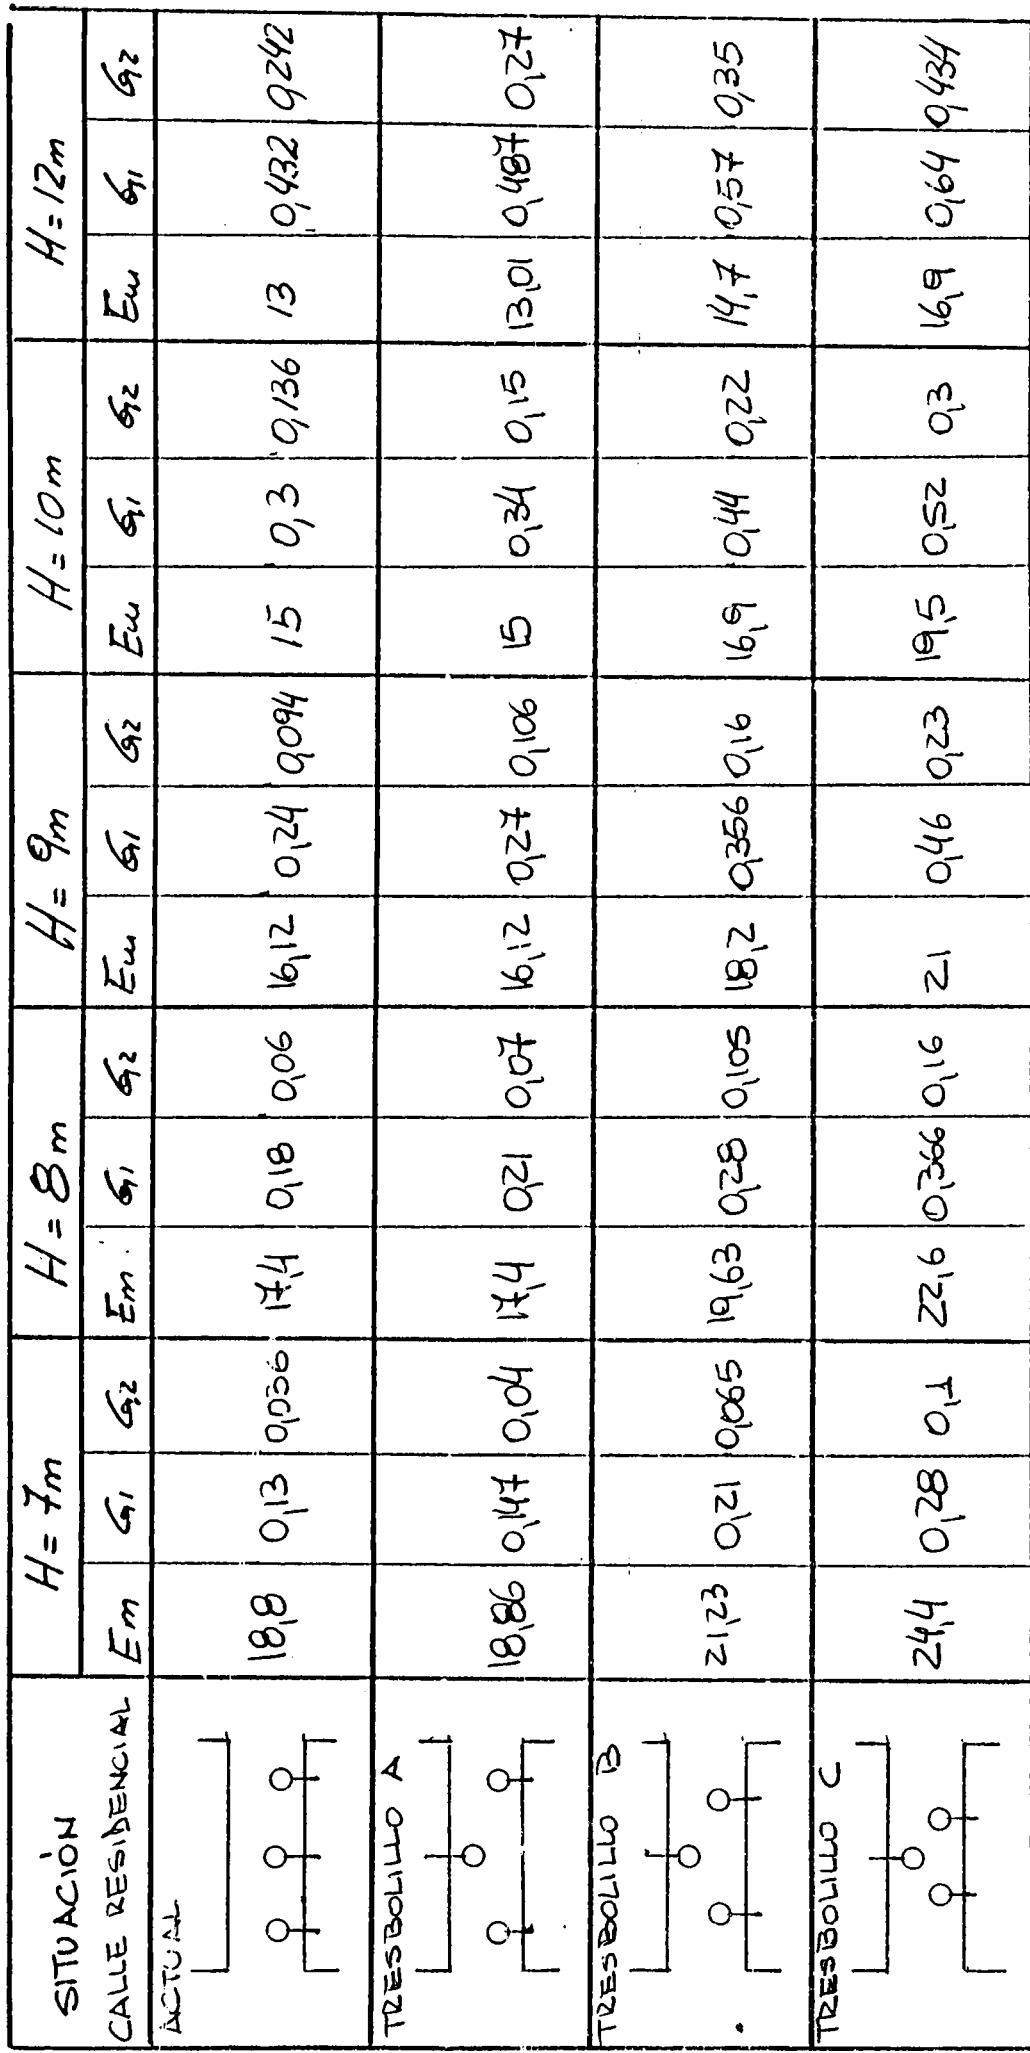 SITUACIÓN
CALLE RESIDENCIAL
H=7m H=8m H=9m H=10m H=12m
Em G1 G2 Em G1 G2 Em G1 G2 Em G1 G2 Em G1 G2
ACTUAL
18,8 0,13 0,036 17,4 0,18 0,06 16,12 0,24 0,094 15 0,3 0,136 13 0,432 0,242
TRESBOLILLO A
18,86 0,147 0,04 17,4 0,21 0,07 16,12 0,27 0,106 15 0,34 0,15 13,01 0,487 0,27
TRESBOLILLO B
21,23 0,21 0,065 19,63 0,28 0,105 18,2 0,356 0,16 16,9 0,44 0,22 14,7 0,57 0,35
TRESBOLILLO C
24,4 0,28 0,1 22,6 0,366 0,16 21 0,46 0,23 19,5 0,52 0,3 16,9 0,64 0,434